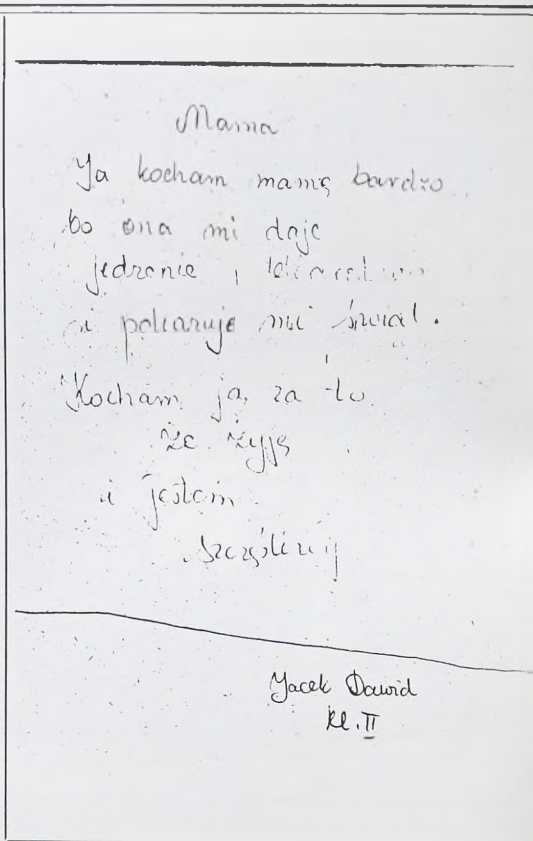 Mama
Ja kocham mamę bardzo
bo ona mi daje
jedzenie i
i pokazuje mi świat.
Kocham ją za to
że żyję
i jestem
szczęśliwy
Jacek Dawid
kl. II